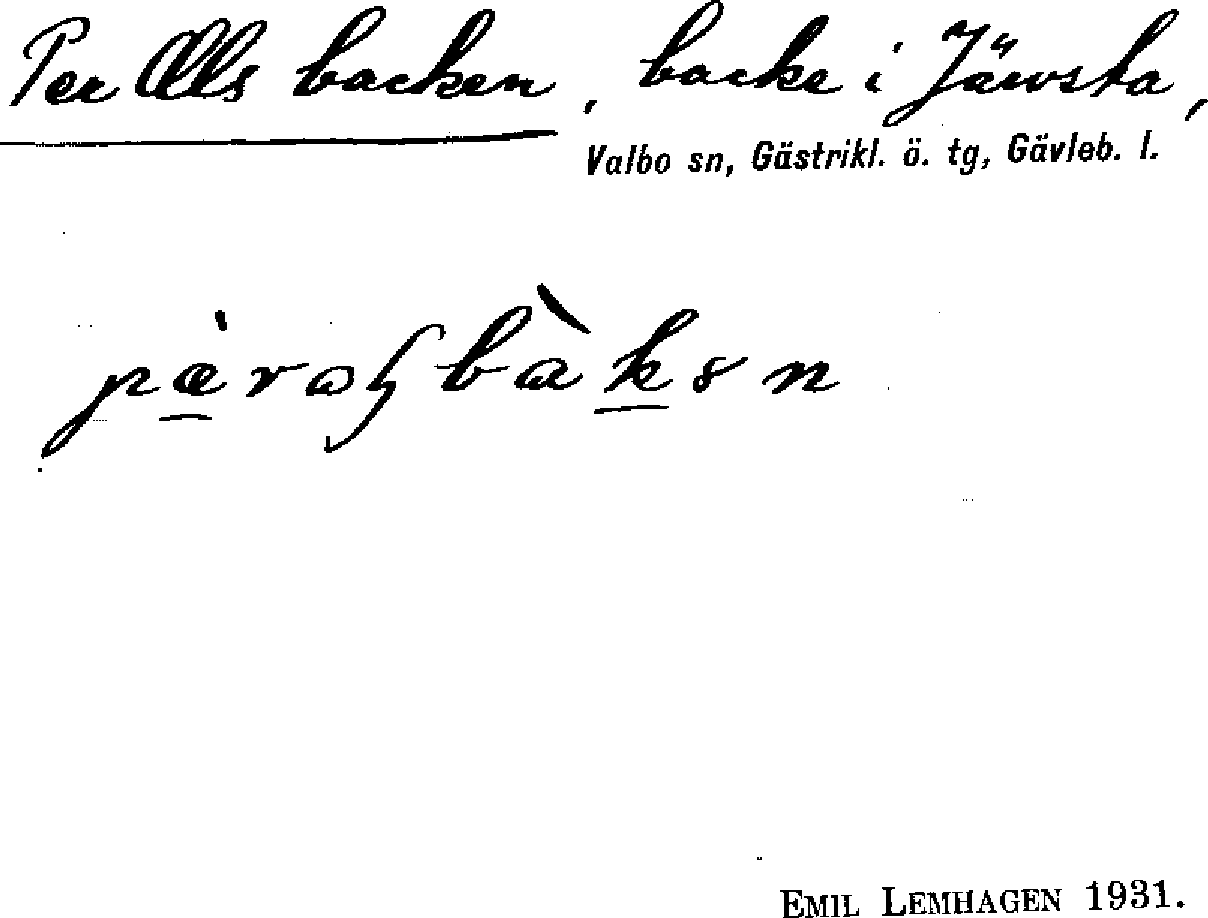 Per Ols backen, backe i Jäwsta,
Valbo sn, Gästrikl. ö. tg, Gävleb. l.
EMIL LEMHAGEN 1931.